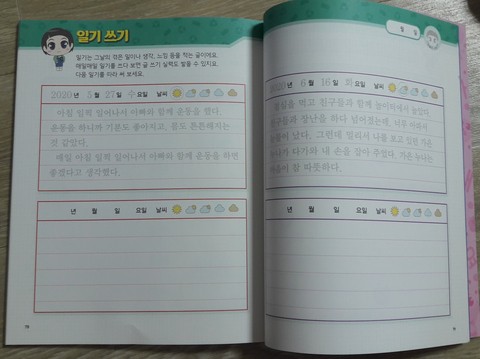 일기 쓰기
일기는 그날의 겪은 일이나 생각, 느낌 등을 적는 글이에요.
매일매일 일기를 쓰다 보면 글 쓰기 실력도 쌓을 수 있지요.
다음 일기를 따라 써 보세요.
2020 년 5 월 27 일 수 요일 날씨
아침 일찍 일어나서 아빠와 함께 운동을 했다.
운동을 하니까 기분도 좋아지고, 몸도 튼튼해지는
것 같았다.
매일 아침 일찍 일어나서 아빠와 함께 운동을 하면
좋겠다고 생각했다.
년 월 일 요일 날씨
월 일
2020 년 6 월 16 일 화 요일 날씨
점심을 먹고 친구들과 함께 놀이터에서 놀았다.
친구들과 장난을 하다 넘어졌는데, 너무 아파서
눈물이 났다. 그런데 멀리서 나를 보고 있던 가은
누나가 다가와 내 손을 잡아 주었다. 가은 누나는
마음이 참 따뜻하다.
년 월 일 요일 날씨